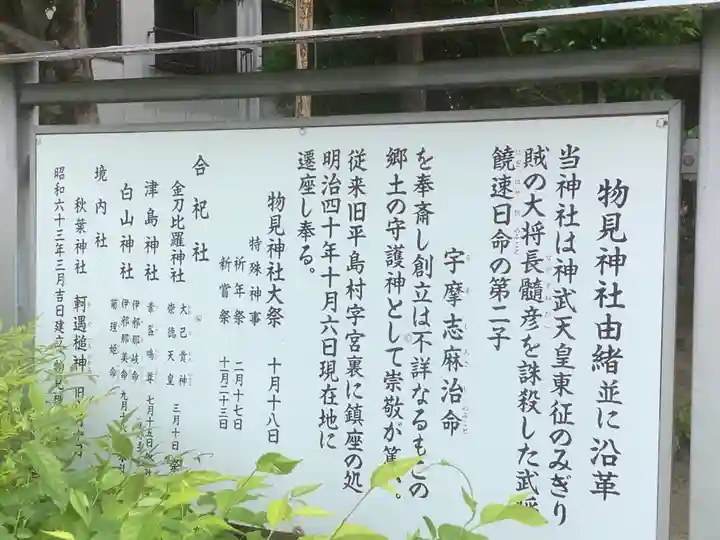 物見神社由緒並に沿革
当神社は神武天皇東征のみぎり
賊の大将長髄彦を誅殺した武将
饒速日命の第二子
宇摩志麻治命
を奉斎し創立は不詳なるもこの
郷土の守護神として崇敬が篤い。
従来旧平島村字宮裏に鎮座の処
明治四十年十月六日現在地に
遷座し奉る。
物見神社大祭 十月十八日
特殊神事
祈年祭 二月十七日
新嘗祭 十一月二十三日
合祀社
金刀比羅神社 大己貴神 崇徳天皇 三月十日
津島神社 素盞嗚尊 七月十五日
白山神社 伊邪那岐命 伊邪那美命 菊理姫命 九月
境内社
秋葉神社 軻遇槌神 旧
昭和六十三年三月吉日建立 物見